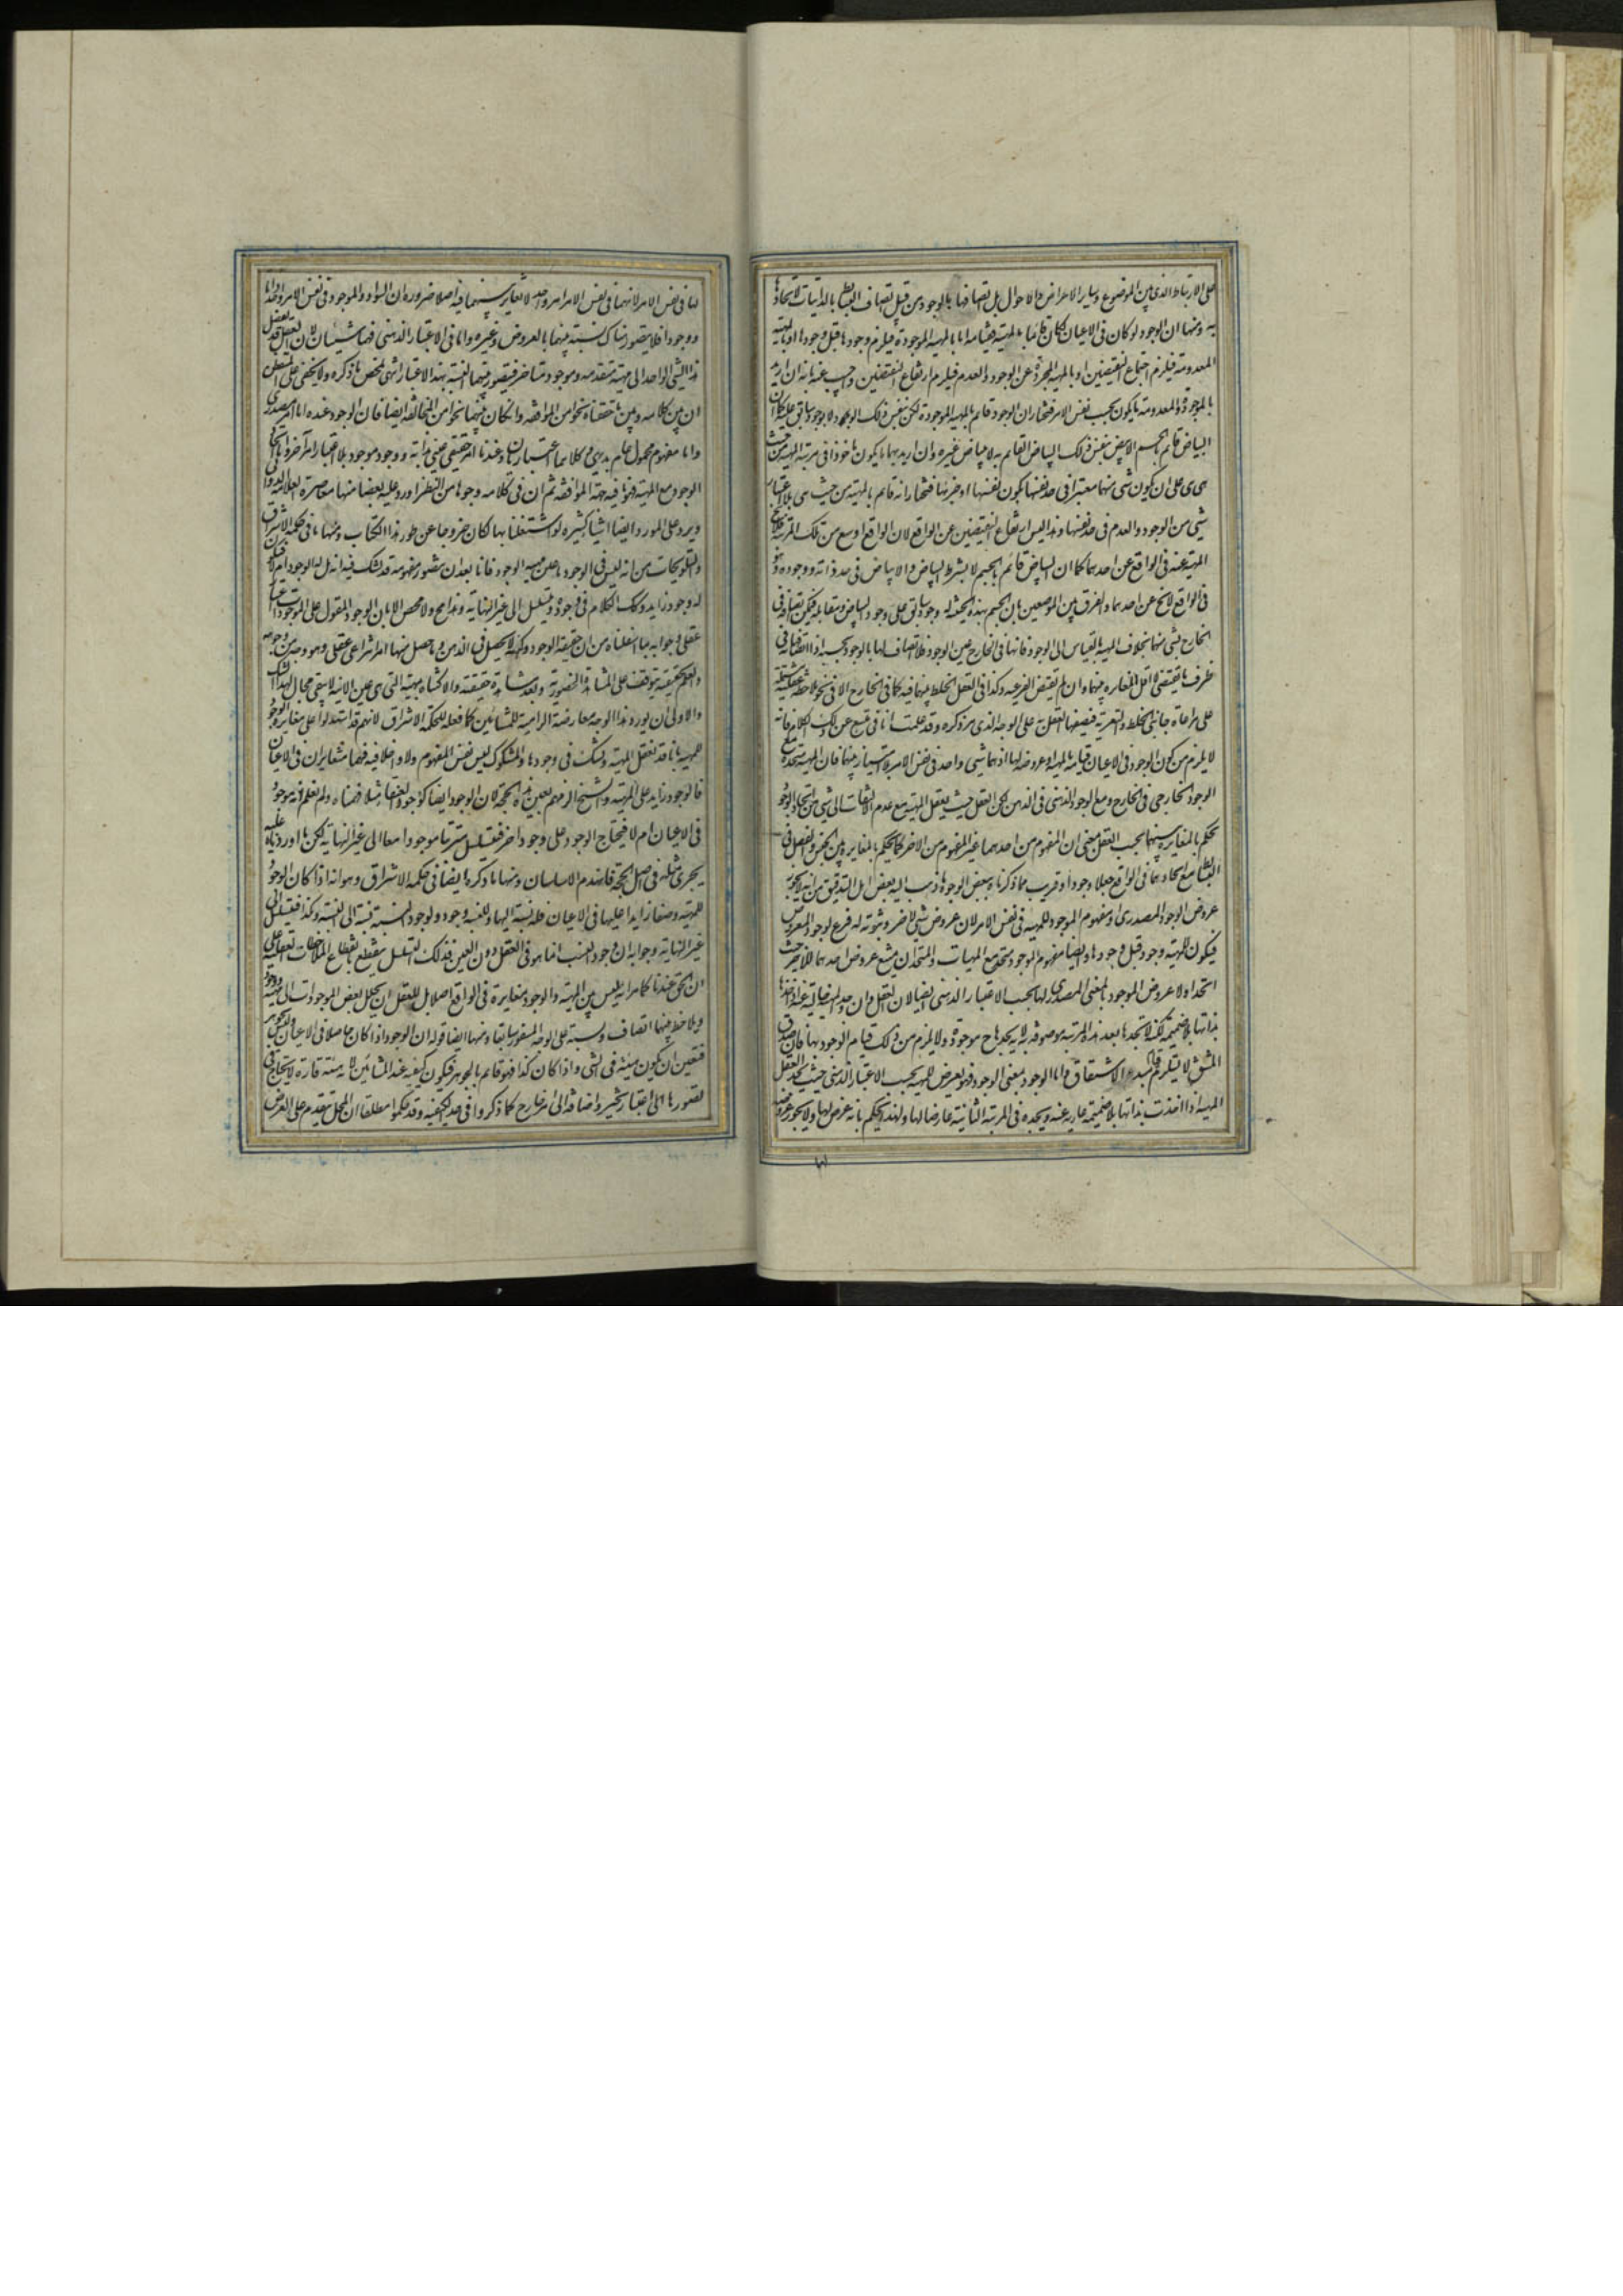 على الارتباط الذى بين الموضوع وساير الاعراض والاحوال بل اتصافها بالوجود من قبيل اتصاف البسائط بالذاتيات لاتحادها
به ومنها ان الوجود لو كان فى الاعيان لكان قائما بالمهية فقيامه اما بالمهية الموجودة فيلزم وجودها قبل وجودها او بالمهية
المعدومة فيلزم اجتماع النقيضين او بالمهية المجردة عن الوجود والعدم فيلزم ارتفاع النقيضين واجيب عنه بانه ان اريد
بالموجودة والمعدومة ما يكون بحسب نفس الامر فنختار ان الوجود قائم بالمهية الموجودة لكن بنفس ذلك الوجود لا بوجود سابق عليه كما ان
البياض قائم بالجسم الابيض بنفس ذلك البياض القائم به لا ببياض غيره وان اريد بهما ما يكون ماخوذا فى مرتبة المهية من حيث
هى هى على ان يكون شى منهما معتبرا فى حد نفسها بكون نفسها او جزئها فنختار انه قائم بالمهية من حيث هى بلا اعتبار
شى من الوجود والعدم فى حد نفسها وهذا ليس ارتفاع النقيضين عن الواقع لان الواقع اوسع من تلك المرتبة فلا يخلو
المهية عنه فى الواقع عن احدهما كما ان البياض قائم بالجسم لا بشرط البياض واللابياض فى حد ذاته ووجوده وهو
فى الواقع لا يخ عن احدهما والفرق بين الموضعين بان الجسم بهذه الحيثية له وجود سابق على وجود البياض ومقابله فيمكن اتصافه فى
الخارج بشى منهما بخلاف المهية بالقياس الى الوجود فانها فى الخارج عين الوجود فلا اتصاف لها بالوجود بحسبه اذ اتصاف فى
ظرف ما يقتضى لا اقل المغايرة بينهما وان لم يقتض الفرعية وكذا فى العقل للخلط بينهما فيه كما فى الخارج الا فى نحو ملاحظة عقلية مشتملة
على مراعاة جانبى الخلط والتعرية فيصفها العقل به على الوجه الذى مر ذكره وقد علمت انا فى متسع عن ذلك الكلام فانه
لا يلزم من كون الوجود فى الاعيان قيامه بالمهية او عروضه لها اذ هما شى واحد فى نفس الامر بلا امتياز بينهما فان المهية متحدة مع
الوجود الخارجى فى الخارج ومع الوجود الذهنى فى الذهن لكن العقل حيث يعقل المهية مع عدم الالتفات الى شى من انحاء الوجود
يحكم بالمغايرة بينهما بحسب العقل بمعنى ان المفهوم من احدهما غير المفهوم من الاخر كما يحكم بالمغايرة بين الجنس والفصل فى
البسائط مع اتحادهما فى الواقع جعلا ووجودا وقريب مما ذكرناه ببعض الوجوه ما ذهب اليه بعض اهل التدقيق من انه لا يجوز
عروض الوجود المصدرى او مفهوم الموجود للمهية فى نفس الامر لان عروض شى لاخر وثبوته له فرع لوجود المعروض
فيكون للمهية وجود قبل وجودها وايضا مفهوم الموجود متحد مع المهيات والمتحدان يمتنع عروض احدهما للاخر حيث
اتحدا ولا عروض الموجود بالمعنى المصدرى لها بحسب الاعتبار الذهنى ايضا لان العقل وان وجد المهية خالية عنه اذا اخذها
بذاتها بلا ضميمة لكنه لا يجدها بعد هذه المرتبة موصوفة به لانه يجدها ح موجودة ولا يلزم من ذلك قيام الوجود بها فان صدق
المشتق لا يستلزم قيام مبدء الاشتقاق واما الوجود بمعنى الموجود فهو يعرض للمهية بحسب الاعتبار الذهنى حيث يجد العقل
المهية اذا اخذت بذاتها بلا ضميمة عارية عنه ويجده فى المرتبة الثانية عارضا لها ولهذا يحكم بانه عرض لها ولا يجوز عروضه
لها فى نفس الامر لانهما فى نفس الامر امر واحد لا تغاير بينهما فيه اصلا ضرورة ان السواد والموجود فى نفس الامر واحد ذاتا
ووجودا فلا يتصور هناك نسبة بينهما بالعروض وغيره واما فى الاعتبار الذهنى فهما شيئان لان العقل قد يفصل
هذا الشى الواحد الى مهية متقدمة وموجود متاخر فيتصور بينهما النسبة بهذا الاعتبار انتهى ملخص ما ذكره ولا يخفى على المتفطن
ان بين كلامه وبين ما حققناه نحوا من الموافقة وان كان بينهما نحوا من المخالفة ايضا فان الوجود عنده اما امر مصدرى
واما مفهوم محمول عام بديهى وكلاهما اعتباريان وعندنا امر حقيقى عينى بذاته ووجود وموجود بلا اعتبار امر آخر واتحاد
الوجود مع المهية فهو ما فيه جهة الموافقة ثم ان فى كلامه وجوها من النظر اورد عليه بعضا منها معاصره العلامة الدوانى
ويرد على المورد ايضا اشياء كثيرة لو اشتغلنا بها لكان خروجا عن طور هذا الكتاب ومنها ما فى حكمة الاشراق
والتلويحات من انه ليس فى الوجود ما عين مهيته الوجود فانا بعد ان نتصور مفهومه قد نشك فى انه هل له الوجود ام لا فيكون
له وجود زايد وكك الكلام فى وجوده ويتسلسل الى غير النهاية وهذا مح ولا محيص الا بان الوجود المقول على الموجودات اعتبار
عقلى وجوابه بما اسلفناه من ان حقيقة الوجود وكنهه لا يحصل فى الذهن وما حصل منها امر انتزاعى عقلى وهو وجه من وجوهه
والعلم بحقيقته يتوقف على المشاهدة الحضورية وبعد مشاهدة حقيقته والاكتناه بمهيته التى هى عين الانية لا يبقى مجال لهذا الشك
والاولى ان يورد هذا الوجه معارضة الزامية للمشائين كما فعله فى حكمة الاشراق لانهم قد استدلوا على مغايرة الوجود
للمهية بانا قد نعقل المهية ونشك فى وجودها والمشكوك ليس نفس المعلوم ولا داخلا فيه فهما متغايران فى الاعيان
فالوجود زايد على المهية والشيخ الزمهم بعين هذه الحجة لان الوجود ايضا كوجود العنقاء مثلا فهمناه ولم نعلم انه موجود
فى الاعيان ام لا فيحتاج الوجود على وجود اخر فيتسلسل مترتبا موجودا معا الى غير النهاية لكن ما اوردناه عليه
يجرى مثله فى اصل الحجة فانهدم الاساسان ومنها ما ذكره ايضا فى حكمة الاشراق وهو انه اذا كان الوجود
للمهية وصفا زايدا عليها فى الاعيان فله نسبة اليها وللنسبة وجود ولوجود النسبة نسبة الى النسبة وكذا فيتسلسل الى
غير النهاية وجوابه ان وجود النسب انما هو فى العقل دون العين فذلك التسلسل ينقطع بانقطاع الملاحظات العقلية على
ان الحق عندنا كما مر انه ليس بين المهية والوجود مغايرة فى الواقع اصلا بل للعقل ان يحلل بعض الموجودات الى مهية ووجود
ويلاحظ بينهما اتصاف ونسبة على الوجه المسفور سابقا ومنها ايضا قوله ان الوجود اذا كان حاصلا فى الاعيان وليس بجوهر
فتعين ان يكون هيئة فى الشى واذا كان كذا فهو قائم بالجوهر فيكون كيفية عند المشائين لانه هيئة قارة لا يحتاج فى
تصورها الى اعتبار تجز واضافة الى امر خارج كما ذكروا فى حد الكيفية وقد حكموا مطلقا ان المحل يتقدم على العرض